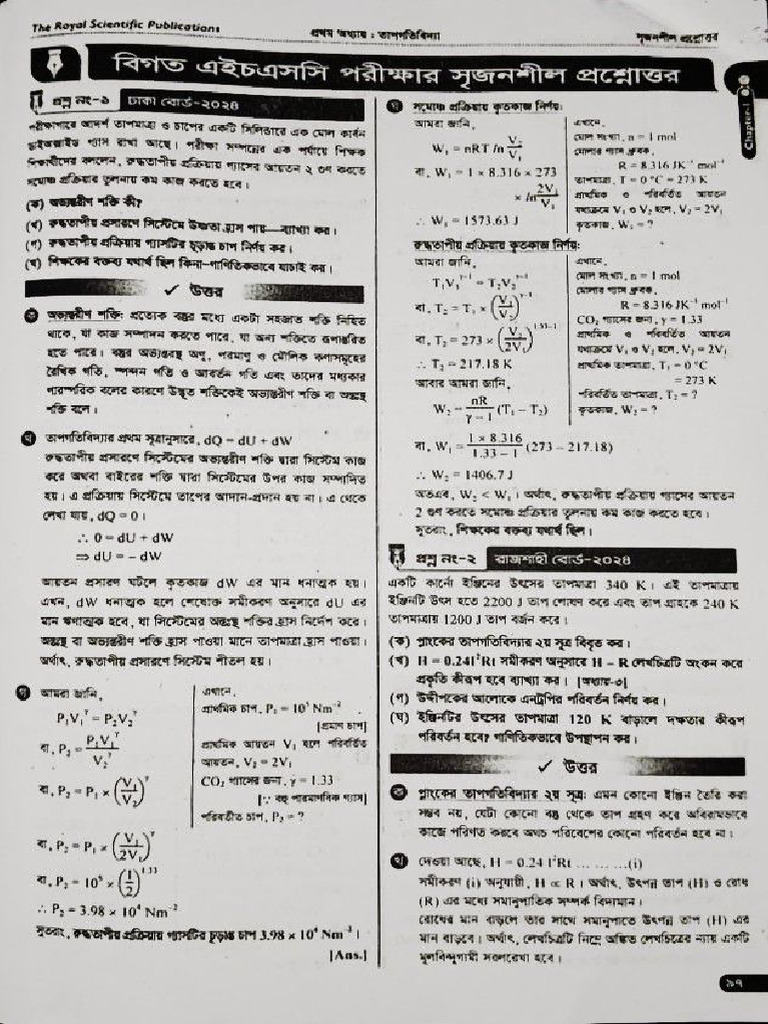 The Royal Scientific Publications
প্রথম অধ্যায় : তাপগতিবিদ্যা
সৃজনশীল প্রশ্নোত্তর
বিগত এইচএসসি পরীক্ষার সৃজনশীল প্রশ্নোত্তর
Chapter-1
প্রশ্ন নং-১ ঢাকা বোর্ড-২০২৪
পরীক্ষাগারে আদর্শ তাপমাত্রা ও চাপের একটি সিলিন্ডারে এক মোল কার্বন
ডাইঅক্সাইড গ্যাস রাখা আছে। পরীক্ষা সম্পন্নের এক পর্যায়ে শিক্ষক
শিক্ষার্থীদের বললেন, রুদ্ধতাপীয় প্রক্রিয়ায় গ্যাসের আয়তন ২ গুণ করতে
সমোষ্ণ প্রক্রিয়ার তুলনায় কম কাজ করতে হবে।
(ক) অভ্যন্তরীণ শক্তি কী?
(খ) রুদ্ধতাপীয় প্রসারণে সিস্টেমে উষ্ণতা হ্রাস পায়—ব্যাখ্যা কর।
(গ) রুদ্ধতাপীয় প্রক্রিয়ায় গ্যাসটির চূড়ান্ত চাপ নির্ণয় কর।
(ঘ) শিক্ষকের বক্তব্য যথার্থ ছিল কিনা—গাণিতিকভাবে যাচাই কর।
✓ উত্তর
ক অভ্যন্তরীণ শক্তি: প্রত্যেক বস্তুর মধ্যে একটা সহজাত শক্তি নিহিত
থাকে, যা কাজ সম্পাদন করতে পারে, যা অন্য শক্তিতে রূপান্তরিত
হতে পারে। বস্তুর অভ্যন্তরস্থ অণু, পরমাণু ও মৌলিক কণাসমূহের
রৈখিক গতি, স্পন্দন গতি ও আবর্তন গতি এবং তাদের মধ্যকার
পারস্পরিক বলের কারণে উদ্ভূত শক্তিকেই অভ্যন্তরীণ শক্তি বা অন্তস্থ
শক্তি বলে।
খ তাপগতিবিদ্যার প্রথম সূত্রানুসারে, dQ = dU + dW
রুদ্ধতাপীয় প্রসারণে সিস্টেমের অভ্যন্তরীণ শক্তি দ্বারা সিস্টেম কাজ
করে অথবা বাইরের শক্তি দ্বারা সিস্টেমের উপর কাজ সম্পাদিত
হয়। এ প্রক্রিয়ায় সিস্টেমে তাপের আদান-প্রদান হয় না। এ থেকে
লেখা যায়, dQ = 0।
∴ 0 = dU + dW
⇒ dU = – dW
আয়তন প্রসারণ ঘটলে কৃতকাজ dW এর মান ধনাত্মক হয়।
এখন, dW ধনাত্মক হলে শেষোক্ত সমীকরণ অনুসারে dU এর
মান ঋণাত্মক হবে, যা সিস্টেমের অন্তস্থ শক্তির হ্রাস নির্দেশ করে।
অন্তস্থ বা অভ্যন্তরীণ শক্তি হ্রাস পাওয়া মানে তাপমাত্রা হ্রাস পাওয়া।
অর্থাৎ, রুদ্ধতাপীয় প্রসারণে সিস্টেম শীতল হয়।
গ আমরা জানি,
P₁V₁^γ = P₂V₂^γ
বা, P₂ = P₁V₁^γ / V₂^γ
বা, P₂ = P₁ × (V₁/V₂)^γ
বা, P₂ = P₁ × (V₁/2V₁)^γ
বা, P₂ = 10⁵ × (1/2)^1.33
∴ P₂ = 3.98 × 10⁴ Nm⁻²
এখানে,
প্রাথমিক চাপ, P₁ = 10⁵ Nm⁻²
[প্রমাণ চাপ]
প্রাথমিক আয়তন V₁ হলে পরিবর্তিত
আয়তন, V₂ = 2V₁
CO₂ গ্যাসের জন্য, γ = 1.33
[∵ বহু পারমাণবিক গ্যাস]
পরিবর্তীত চাপ, P₂ = ?
সুতরাং, রুদ্ধতাপীয় প্রক্রিয়ায় গ্যাসটির চূড়ান্ত চাপ 3.98 × 10⁴ Nm⁻²।
[Ans.]
ঘ সমোষ্ণ প্রক্রিয়ায় কৃতকাজ নির্ণয়:
আমরা জানি,
W₁ = nRT ln V₂/V₁
বা, W₁ = 1 × 8.316 × 273
× ln 2V₁/V₁
∴ W₁ = 1573.63 J
এখানে,
মোল সংখ্যা, n = 1 mol
মোলার গ্যাস ধ্রুবক,
R = 8.316 JK⁻¹ mol⁻¹
তাপমাত্রা, T = 0 °C = 273 K
প্রাথমিক ও পরিবর্তিত আয়তন
যথাক্রমে V₁ ও V₂ হলে, V₂ = 2V₁
কৃতকাজ, W₁ = ?
রুদ্ধতাপীয় প্রক্রিয়ায় কৃতকাজ নির্ণয়:
আমরা জানি,
T₁V₁^γ⁻¹ = T₂V₂^γ⁻¹
বা, T₂ = T₁ × (V₁/V₂)^γ⁻¹
বা, T₂ = 273 × (V₁/2V₁)^1.33–1
∴ T₂ = 217.18 K
আবার আমরা জানি,
W₂ = nR/(γ – 1) (T₁ – T₂)
বা, W₁ = (1 × 8.316)/(1.33 – 1) (273 – 217.18)
∴ W₂ = 1406.7 J
এখানে,
মোল সংখ্যা, n = 1 mol
মোলার গ্যাস ধ্রুবক,
R = 8.316 JK⁻¹ mol⁻¹
CO₂ গ্যাসের জন্য, γ = 1.33
প্রাথমিক ও পরিবর্তিত আয়তন
যথাক্রমে V₁ ও V₂ হলে, V₂ = 2V₁
প্রাথমিক তাপমাত্রা, T₁ = 0 °C
= 273 K
পরিবর্তিত তাপমাত্রা, T₂ = ?
কৃতকাজ, W₂ = ?
অতএব, W₂ < W₁। অর্থাৎ, রুদ্ধতাপীয় প্রক্রিয়ায় গ্যাসের আয়তন
2 গুণ করতে সমোষ্ণ প্রক্রিয়ার তুলনায় কম কাজ করতে হবে।
সুতরাং, শিক্ষকের বক্তব্য যথার্থ ছিল।
প্রশ্ন নং-২ রাজশাহী বোর্ড-২০২৪
একটি কার্নো ইঞ্জিনের উৎসের তাপমাত্রা 340 K। এই তাপমাত্রায়
ইঞ্জিনটি উৎস হতে 2200 J তাপ শোষণ করে এবং তাপ গ্রাহকে 240 K
তাপমাত্রায় 1200 J তাপ বর্জন করে।
(ক) প্লাংকের তাপগতিবিদ্যার ২য় সূত্র বিবৃত কর।
(খ) H = 0.24I²Rt সমীকরণ অনুসারে H – R লেখচিত্রটি অংকন করে
প্রকৃতি কীরূপ হবে ব্যাখ্যা কর। [অধ্যায়-৩]
(গ) উদ্দীপকের আলোকে এনট্রপির পরিবর্তন নির্ণয় কর।
(ঘ) ইঞ্জিনটির উৎসের তাপমাত্রা 120 K বাড়ালে দক্ষতার কীরূপ
পরিবর্তন হবে? গাণিতিকভাবে উপস্থাপন কর।
✓ উত্তর
ক প্লাংকের তাপগতিবিদ্যার ২য় সূত্র: এমন কোনো ইঞ্জিন তৈরি করা
সম্ভব নয়, যেটা কোনো বস্তু থেকে তাপ গ্রহণ করে অবিরামভাবে
কাজে পরিণত করবে অথচ পরিবেশের কোনো পরিবর্তন হবে না।
খ দেওয়া আছে, H = 0.24 I²Rt ... ... ...(i)
সমীকরণ (i) অনুযায়ী, H ∝ R। অর্থাৎ, উৎপন্ন তাপ (H) ও রোধ
(R) এর মধ্যে সমানুপাতিক সম্পর্ক বিদ্যমান।
রোধের মান বাড়লে তার সাথে সমানুপাতে উৎপন্ন তাপ (H) এর
মান বাড়বে। অর্থাৎ, লেখচিত্রটি নিম্নে অঙ্কিত লেখচিত্রের ন্যায় একটি
মূলবিন্দুগামী সরলরেখা হবে।
৯৭